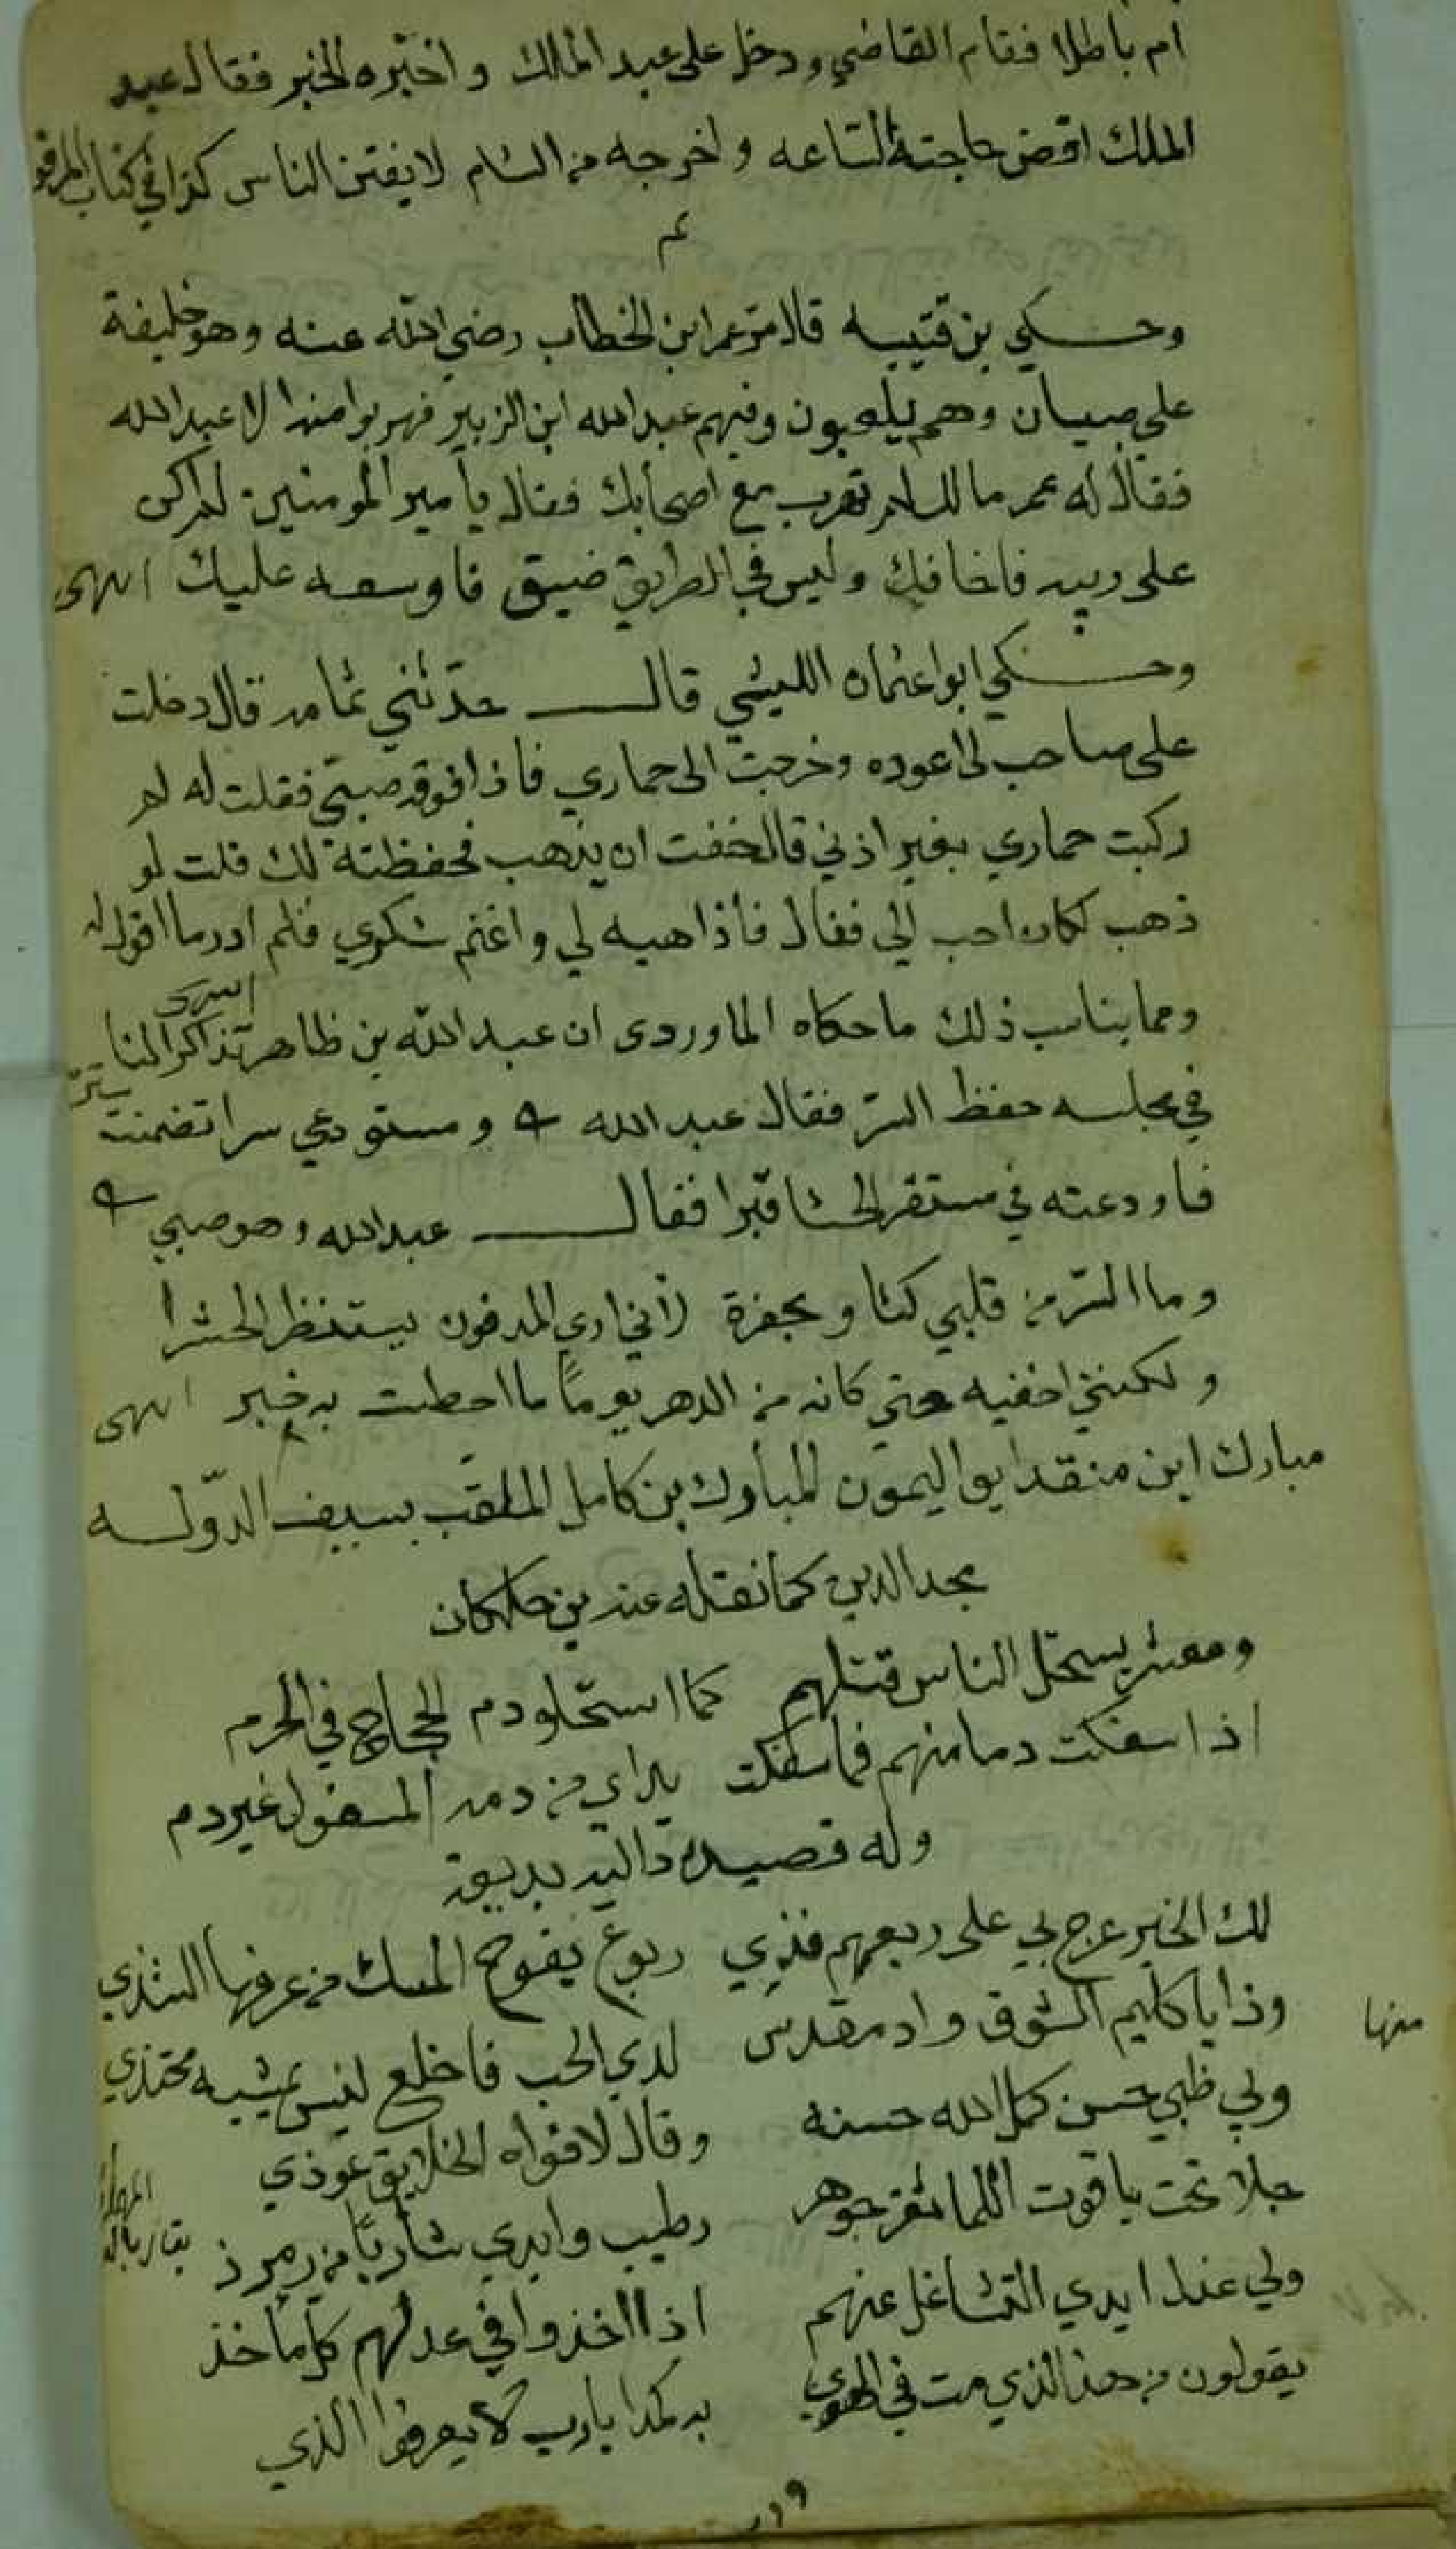 ام باطلا فقام القاضي ودخل على عبد الملك واخبره الخبر فقال عبد
الملك اقض حاجته الساعه واخرجه من الشام لا يفتن الناس كذا في كتاب
تم
وحكي بن قتيبه قال مر عمر ابن الخطاب رضي الله عنه وهو خليفة
على صبيان وهم يلعبون وفيهم عبد الله ابن الزبير فهربوا منه الا عبد الله
فقال له عمر مالك لم تهرب مع اصحابك فقال يا امير المومنين لم اكن
على ريبه فاخافك وليس في الطريق ضيق فاوسعه عليك انتهى
وحكي ابوا عثمان الليثي قال حدثني ثمامه قال دخلت
على صاحب لي اعوده وخرجت الى حماري فاذا فوقه صبي فقلت له لم
ركبت حماري بغير اذني قال خفت ان يذهب فحفظته لك قلت لو
ذهب لكان احب الي فقال فاذا هبه لي واغنم شكري فلم ادر ما اقول له
انتهى
ومما يناسب ذلك ما حكاه الماوردى ان عبد الله بن طاهر تذاكر الناس
في مجلسه حفظ السر فقال عبد الله ومستودعي سرا تضمنت ستره
فاودعته في مستقر الحشا قبرا فقال عبد الله وهو صبي
وما السر من قلبي كثاو بحفرة لاني ارى المدفون يستنظر الحشرا
ولكنني اخفيه حتى كانه من الدهر يوما ما احطت به خبر انتهى
مبارك ابن منقد ابو الميمون المبارك بن كامل الملقب بسيف الدوله
مجد الدين كما نقله عنه بن خلكان
ومعشر يستحل الناس قتلهم كما استحلو دم الحجاج في الحرم
اذا سفكت دما منهم فما سفكت يداي من دمه المسفول غير دم
وله قصيده داليه بديعه
لك الخير عرج بي على ربعهم فذي ربوع يفوح المسك من عرفها الشذي
وذا يا كليم الشوق واد مقدس لدي الحب فاخلع ليس يمشيه محتذي
منها
ولي ظبي حسن كمل الله حسنه وقال لافواه الخلايق عوذي
جلا تحت ياقوت اللما ثغر جوهر رطيب وابدي شاربا من زمرذ
ولي عند ايدي التشاغل عنهم اذا اخذوا في عدلهم كل ماخذ
يقولون من هذا الذي مت في الهوي به كمدا يارب لا يعرفوا الذي